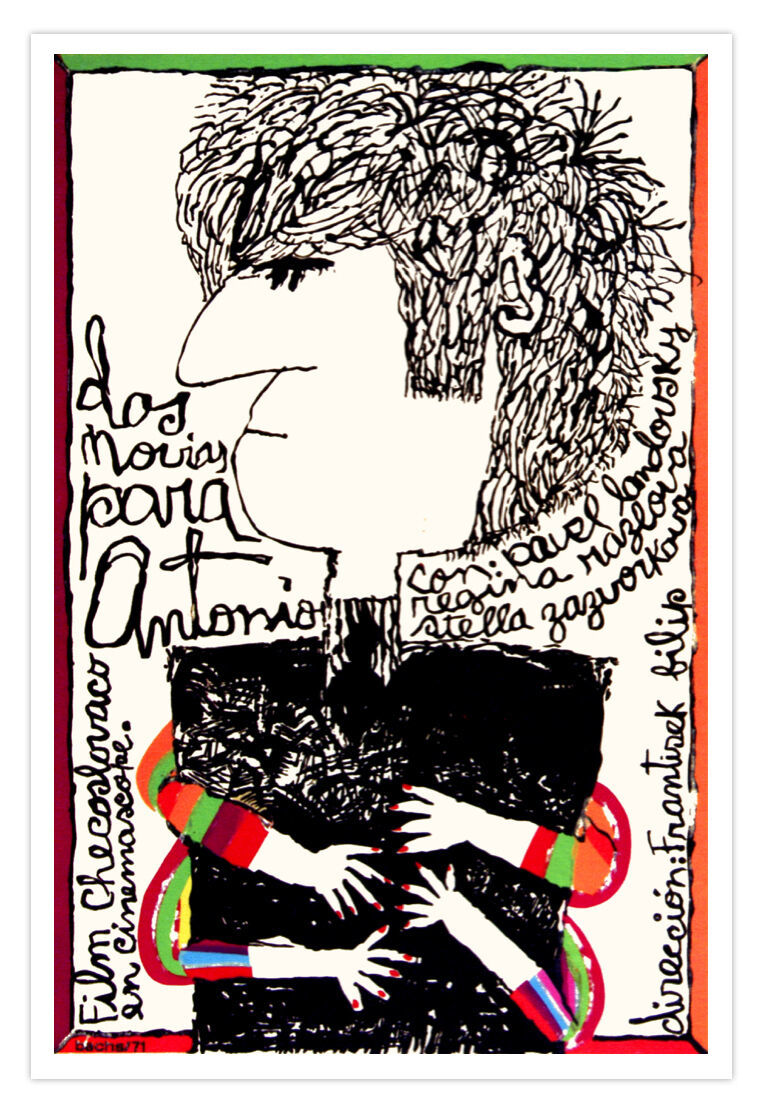 Las
novias
para
Antonio
con: pavel landovsky y
regina razlova
stella zazvorkova
Film Checoslovaco
en cinemascope.
dirección: Frantisek bilip
bachs/71